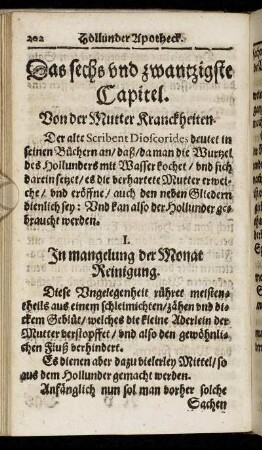 202 Hollunder Apotheck.
Das sechs vnd zwantzigste
Capitel.
Von der Mutter Kranckheiten.
Der alte Scribent Dioscorides deutet in
seinen Büchern an/ daß/ da man die Wurtzel
des Hollunders mit Wasser kochet/ vnd sich
darein setzet/ es die verhärtete Mutter erwei-
che/ vnd eröffne/ auch den neben Gliedern
dienlich sey: Vnd kan also der Hollunder ge-
braucht werden.
I.
In mangelung der Monat
Reinigung.
Diese Vngelegenheit rühret meisten-
theils aus einem schleimichten/ zähen vnd di-
ckem Geblüt/ welches die kleine Aderlein der
Mutter verstopffet/ vnd also den gewöhnli-
chen Fluß verhindert.
Es dienen aber dazu vielerley Mittel/ so
aus dem Hollunder gemacht werden.
Anfänglich nun sol man vorher solche
Sachen